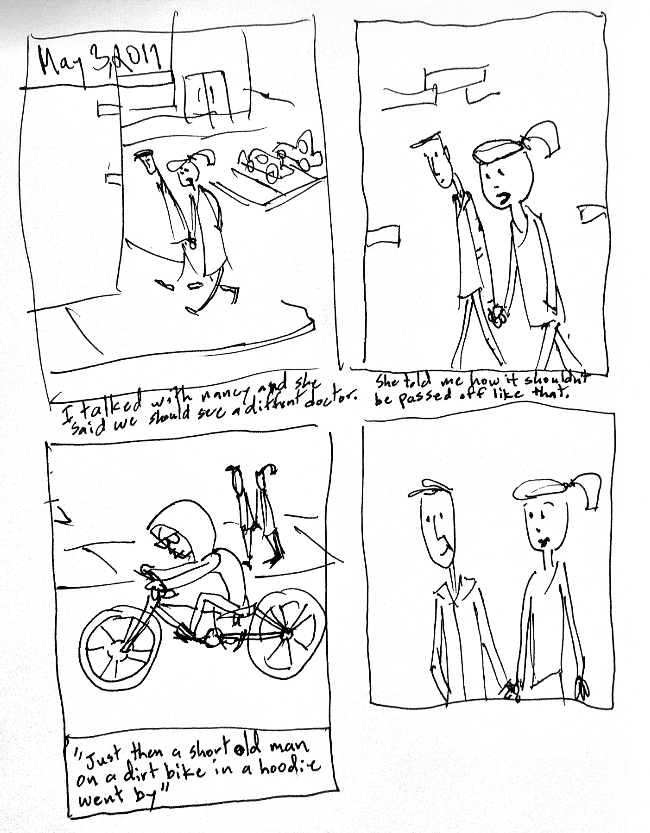 May 3, 2011
I talked with nancy and she
said we should see a diffrent doctor.
She told me how it shouldnt
be passed off like that.
"Just then a short old man
on a dirt bike in a hoodie
went by"